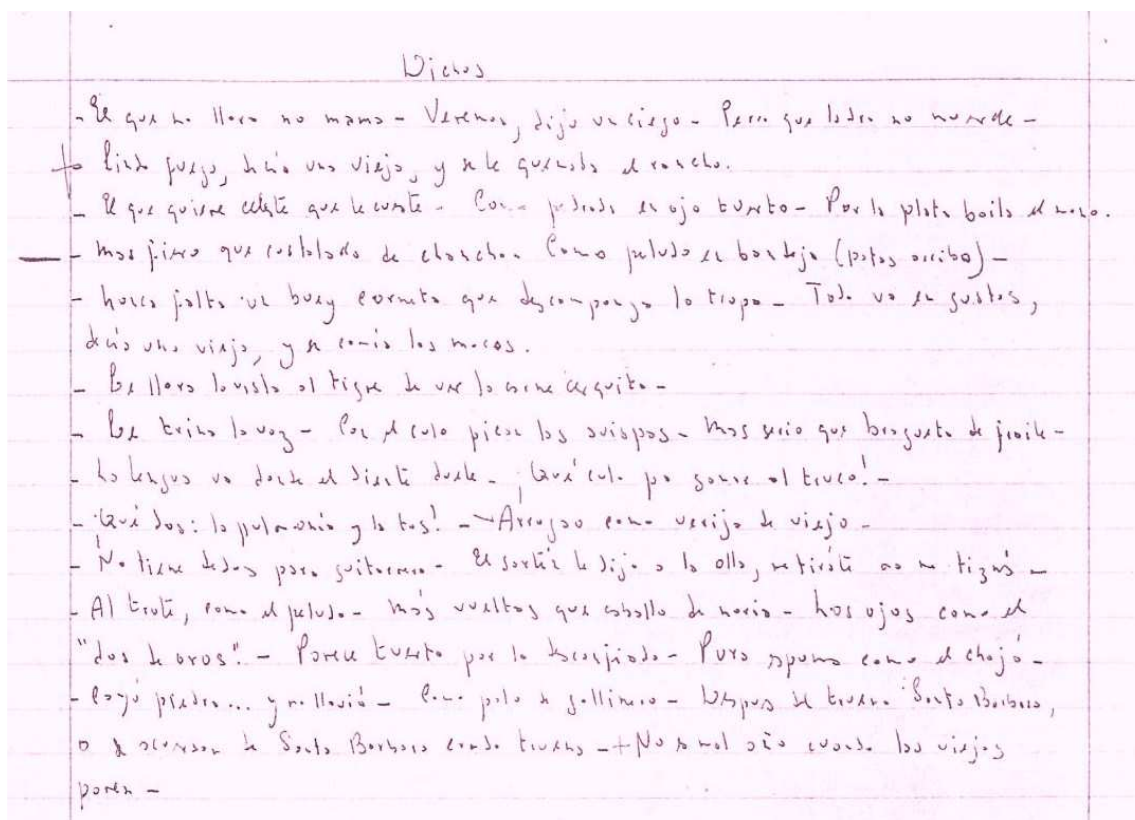 Dichos
- El que no llora no mama - Veremos, dijo un ciego - Perro que ladra no muerde -
+ Lindo fuego, decía una vieja, y se le quemaba el rancho.
- El que quiere celeste que le cueste - Como pedrada en ojo tuerto - Por la plata baila el mono.
- mas fiero que costalada de chancho - Como peludo en bandeja (patas arriba) -
- Nunca falta un buey corneta que descomponga la tropa - Todo va en gustos,
decía una vieja, y se comía los mocos.
- Le llora la vista al tigre de ver la carne cerquita -
- Le trina la voz - Con el culo pican las avispas - mas serio que bragueta de fraile -
- La lengua va donde el diente duele - ¡Qué culo pa ganar al truco! -
- ¡Qué dos: la pulmonía y la tos! - Arrugao como verija de viejo -
- No tiene dedos para guitarrero - El sartén le dijo a la olla, retiráte no me tiznés -
- Al trote, como el peludo - más vueltas que caballo de noria - Los ojos como el
"dos de oros" - Parece tuerto por lo desconfiado - Pura espuma como el chajá -
- Cayó piedra... y no llovió - Como palo de gallinero - Después del trueno Santa Bárbara,
o se acuerdan de Santa Barbara cuando truena - + No es mal año cuando las viejas
paren -